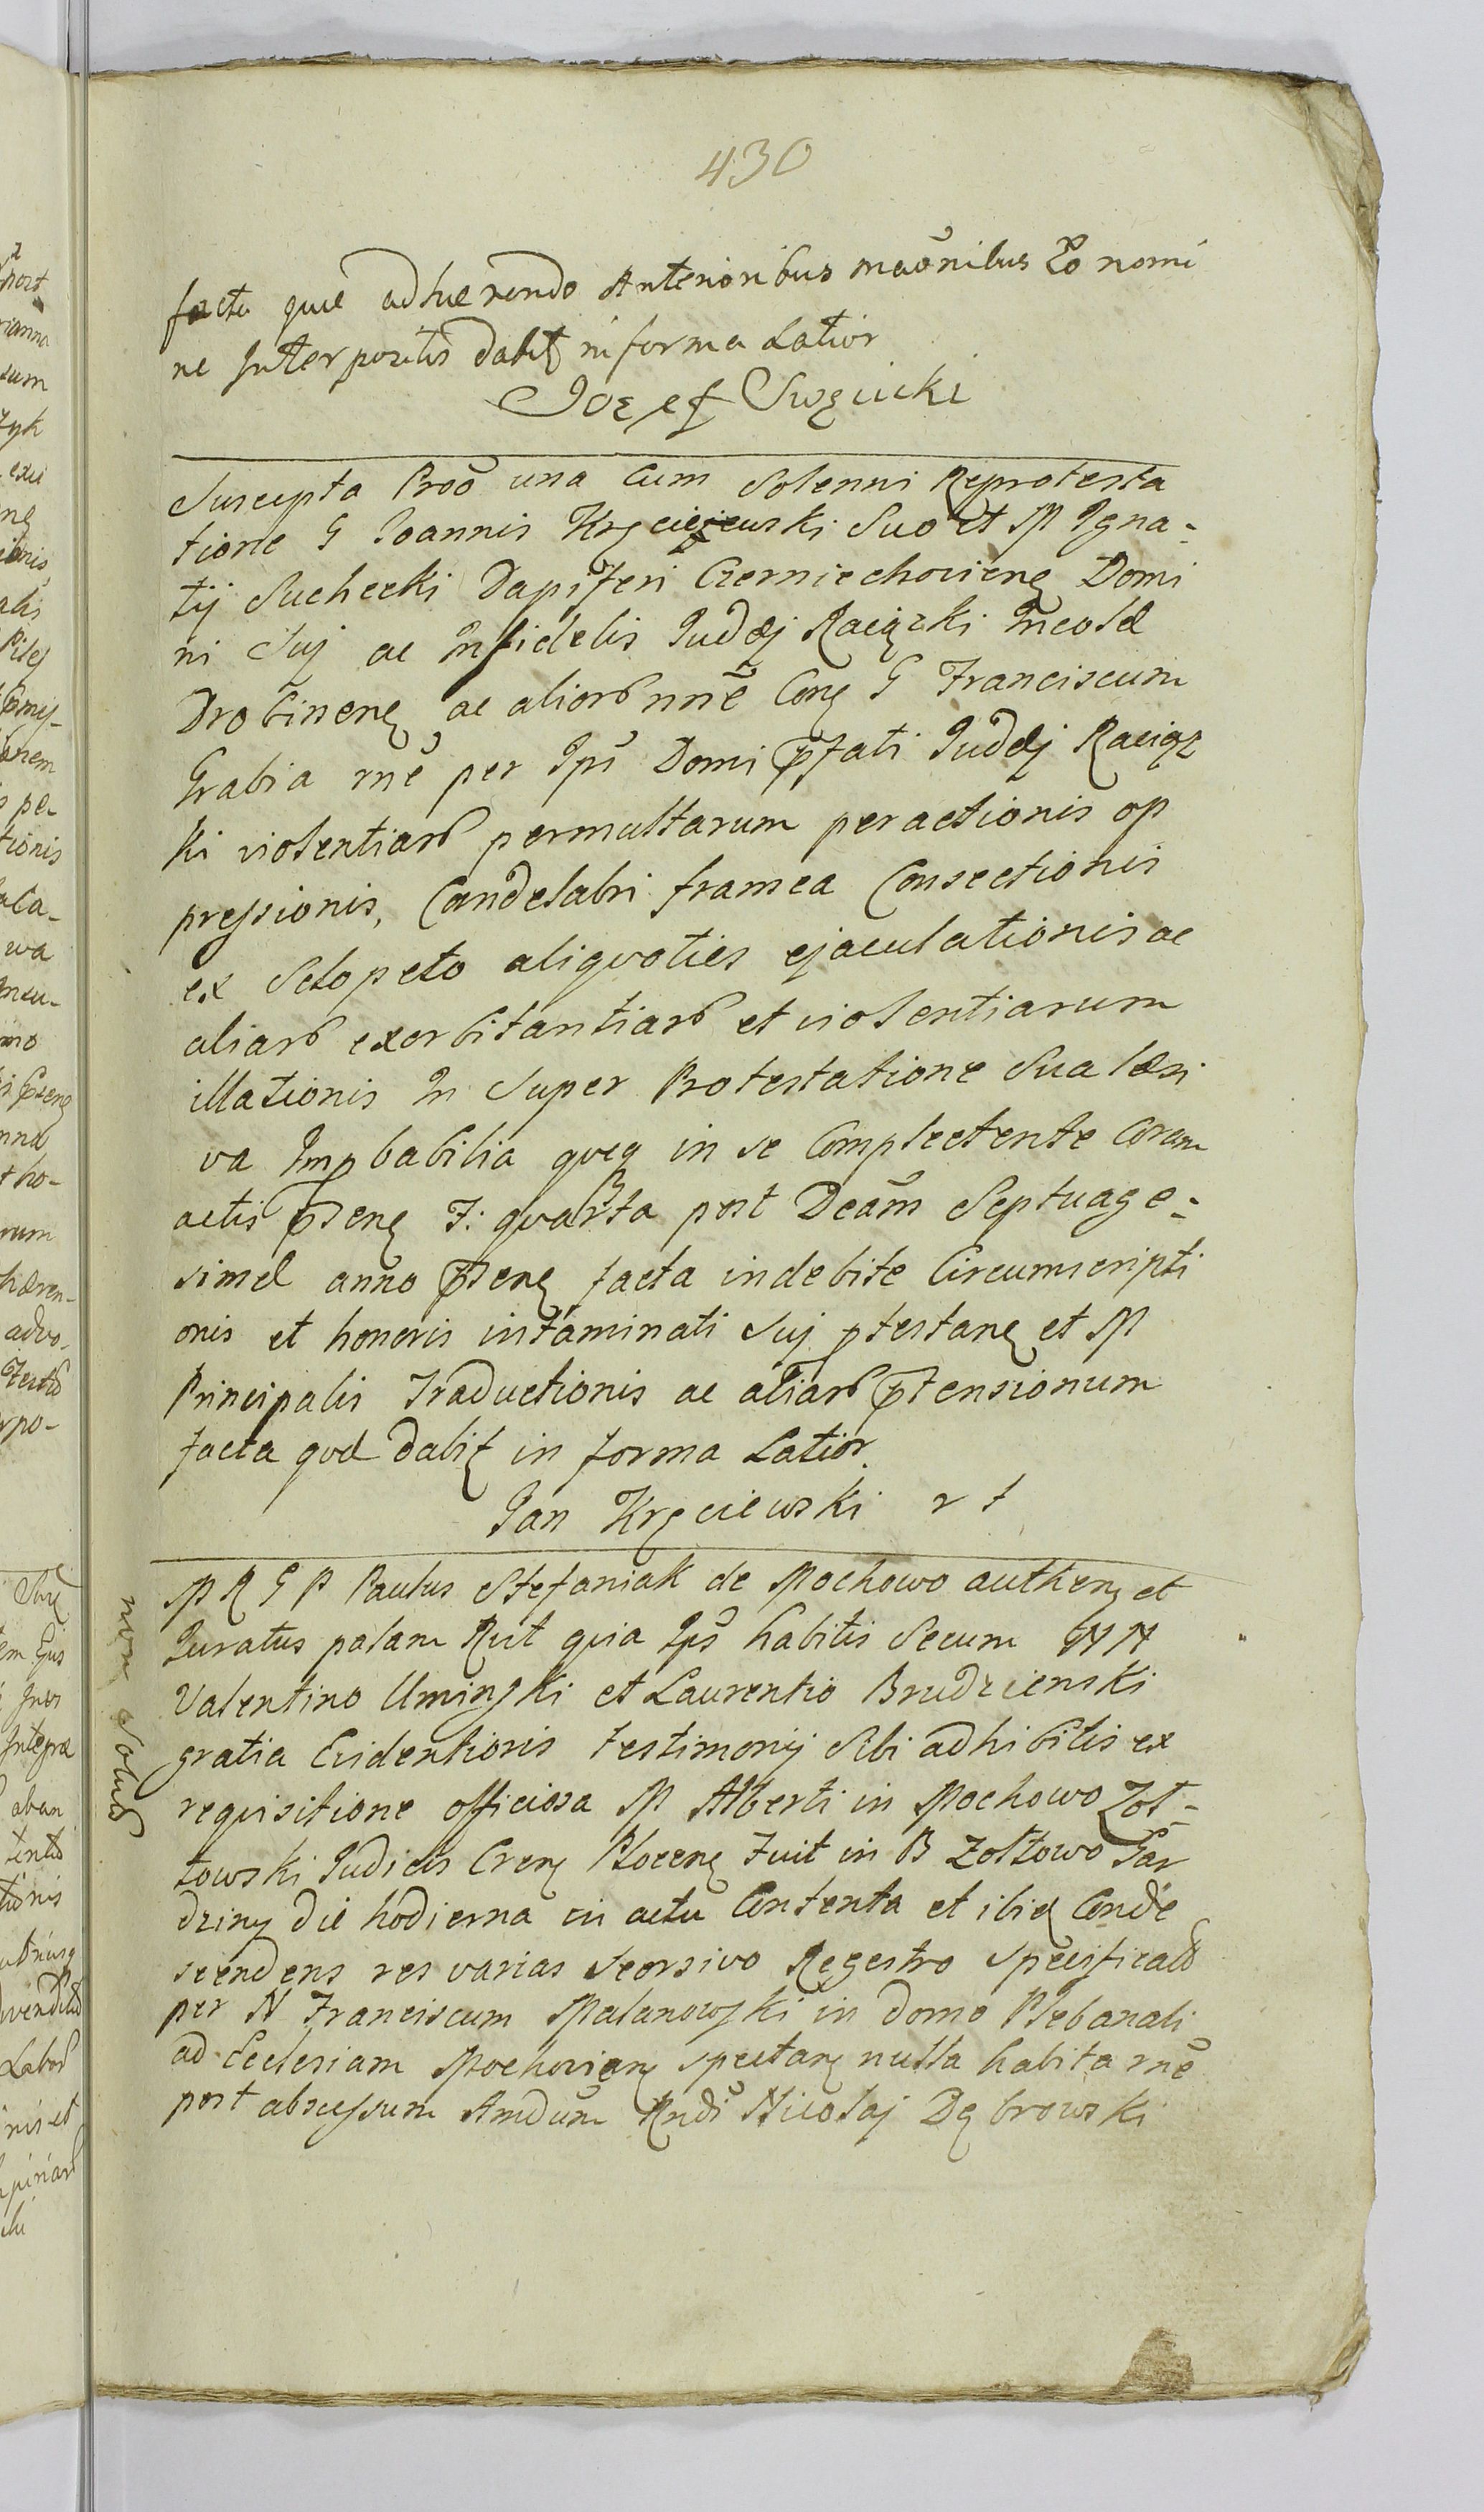 430
facta quæ adhærendo Anterioribus maõnibus Eo nomi
ne Interpositis dabit in forma Latior
Jozef Swęcicki
Suscepta Proõ una cum Solenni Reprotesta
tione G Joannis Kręciejewski Suo et M Igna-
tij Suchecki Dapiferi Czerniechovienę Domi
ni Suj ac Infidelis Judæj Raciązki Incolæ
Drobinenę ac aliorб nnẽ Conę G Franciscum
Grabia rnẽ per Ips̃ Domi p̃fati Judæj Raciąz
ki violentiarб permultarum peractionis op
pressionis, Candelabri framea Consectionis
ex Sclopeto aliqvoties ejaculationis ac
aliarб exorbitantiarб et violentiarum
illationis In Super Protestatione Sua læsi
va Impbabilia qveq in se Complectente Coram
actis p̃senę F: qvarta post Dcãm Septuage-
simæ anno p̃senę facta indebite Circumscripti
onis et honoris intaminati Suj ptestanę et M
Principalis Traductionis ac aliarб p̃tensionum
facta qvæ dabit in forma Latior.
Jan Kręciewski
M R G P Paulus Stefaniak de Mochowo authenę et
Juratus palam Rẽt qvia Ips̃ habitis Secum NN
Valentino Uminski et Laurentio Brudzienski
gratia Evidentioris testimonij Sibi adhibitis ex
requisitione officiosa M Alberti in Mochowo Zol-
towski Judicis Crenę Plocenę Fuit in B Zoltowo Jar
dziny die hodierna in actu Contenta et ibiq Conde
scendens res varias Seorsivo Regestro Specificatб
per N Franciscum Malanowski in domo Plebanali
ad Ecclesiam Mochovienę spectanę nulla habita rnẽ
post abscessum Amdũm Rndi Nicolaj Dąbrowski
non Solus